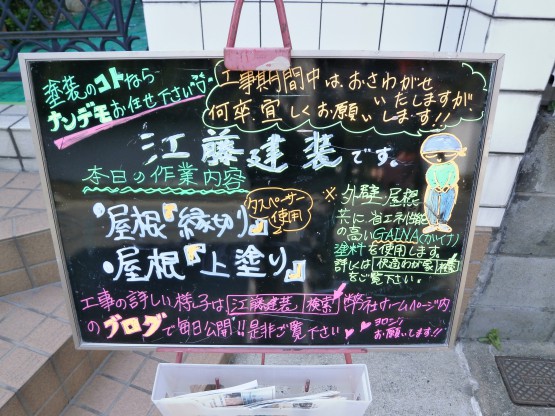 塗装のコトなら
ナンデモお任せ下さい
工事期間中は、おさわがせ
いたしますが
何卒、宜しくお願いします!!
江藤建装です。
本日の作業内容
・屋根『縁切り』
タスペーサー
使用
・屋根『上塗り』
※外壁、屋根
共に省エネ性能
の高いGAINA(ガイナ)
塗料を使用します。
詳しくは 快適わが家 検索
をご覧下さい。
工事の詳しい様子は 江藤建装 検索 弊社ホームページ内
のブログで毎日公開!!是非ご覧下さい
ヨロシク
お願いします!!